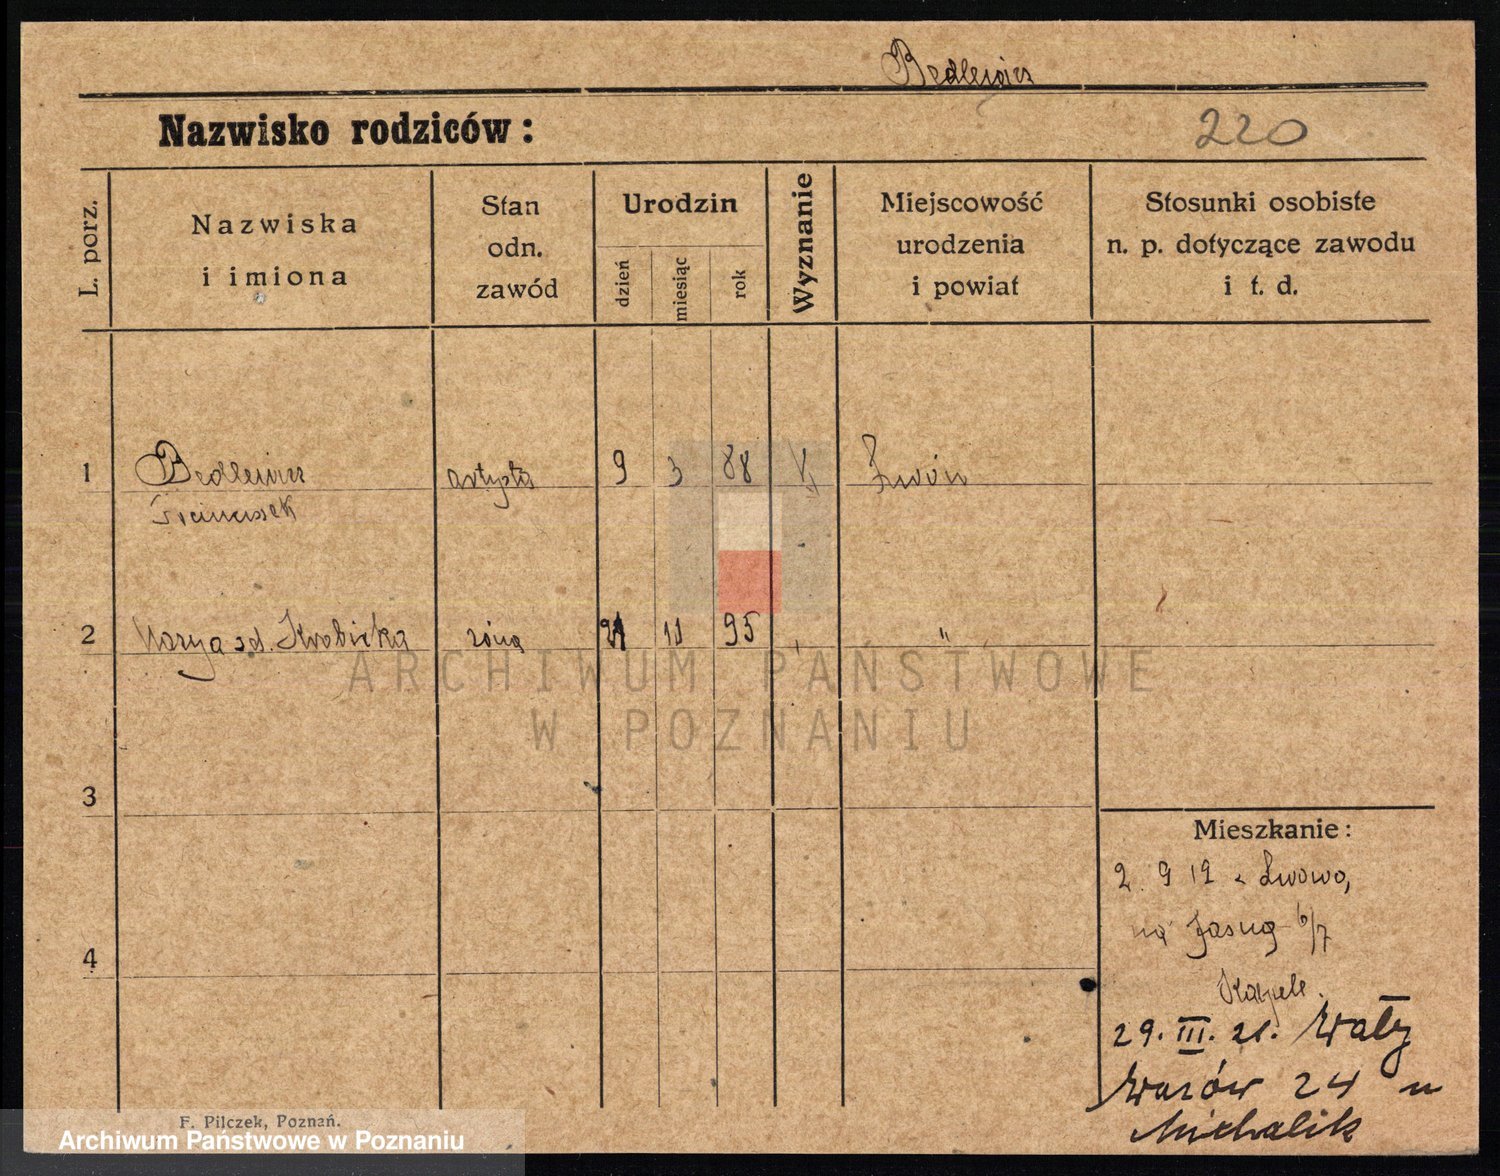 Bedlewicz
Nazwisko rodziców:
220
L. porz.
Nazwiska
i imiona
Stan
odn.
zawód
Urodzin
dzień
miesiąc
rok
Wyznanie
Miejscowość
urodzenia
i powiat
Stosunki osobiste
n. p. dotyczące zawodu
i t. d.
1 Bedlewicz artysta 9 3 88 Lwów
Franciszek
2 Marya zd. Skrobicka żona 11 95 "
ARCHIWUM PAŃSTWOWE
W POZNANIU
3
Mieszkanie:
2 9 12 z Lwowa,
na Jasną 6/7
4
29. III. 21. Wały
Wazów 24 u
Michalik
F. Pilczek, Poznań.
Archiwum Państwowe w Poznaniu